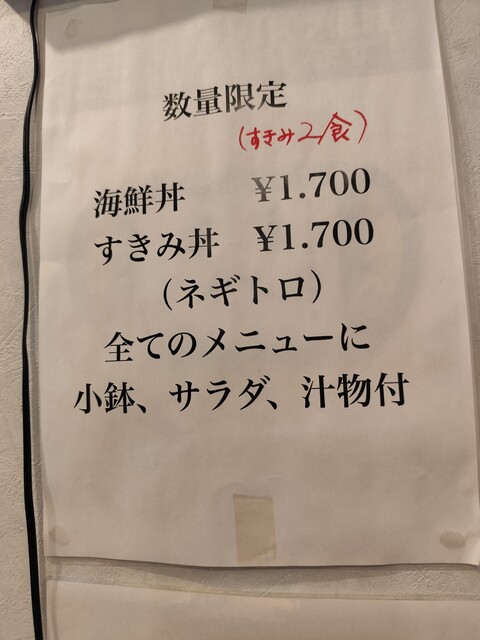 数量限定
(すきみ2食)
海鮮丼 ¥1.700
すきみ丼 ¥1.700
(ネギトロ)
全てのメニューに
小鉢、サラダ、汁物付